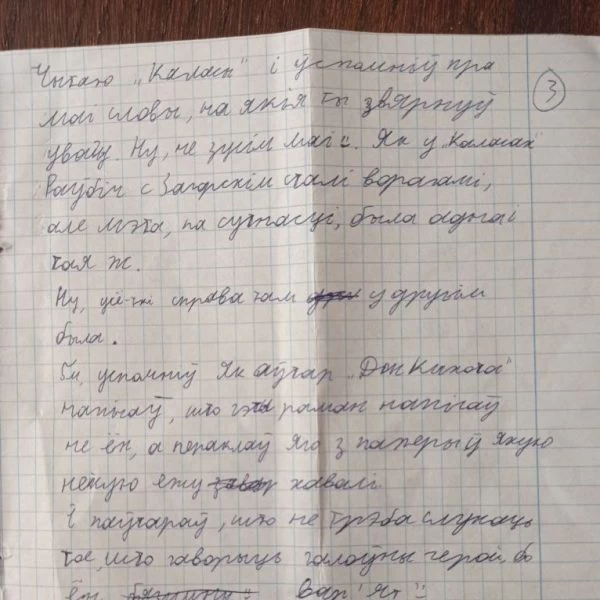 Чытаю „Каласы" і ўспомніў пра
3
маі словы, на якія ты звярнуў
увагу. Ну, не зусім маі :. Як у „Каласах"
Раўбіч с Загорскім сталі ворагамі,
але мэта, па сутнасці, была адна і
тая ж.
Ну, усё-ткі справа там у другім
была.
Гы, успомніў Як аўтар „Дон Кихота"
напісаў, што гэты раман напісаў
не ён, а пераклаў яго з паперы ў якую
нейкую ежу хавалі
І паўтараў, што не трэба слухаць
тое, што гаворыць галоўны герой, бо
ён вар'ят :